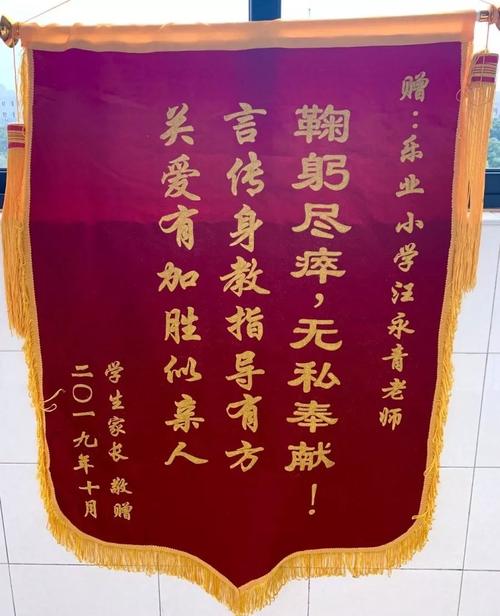 赠：乐业小学汪永青老师
鞠躬尽瘁，无私奉献！
言传身教指导有方
关爱有加胜似亲人
学生家长 敬赠
二〇一九年十月